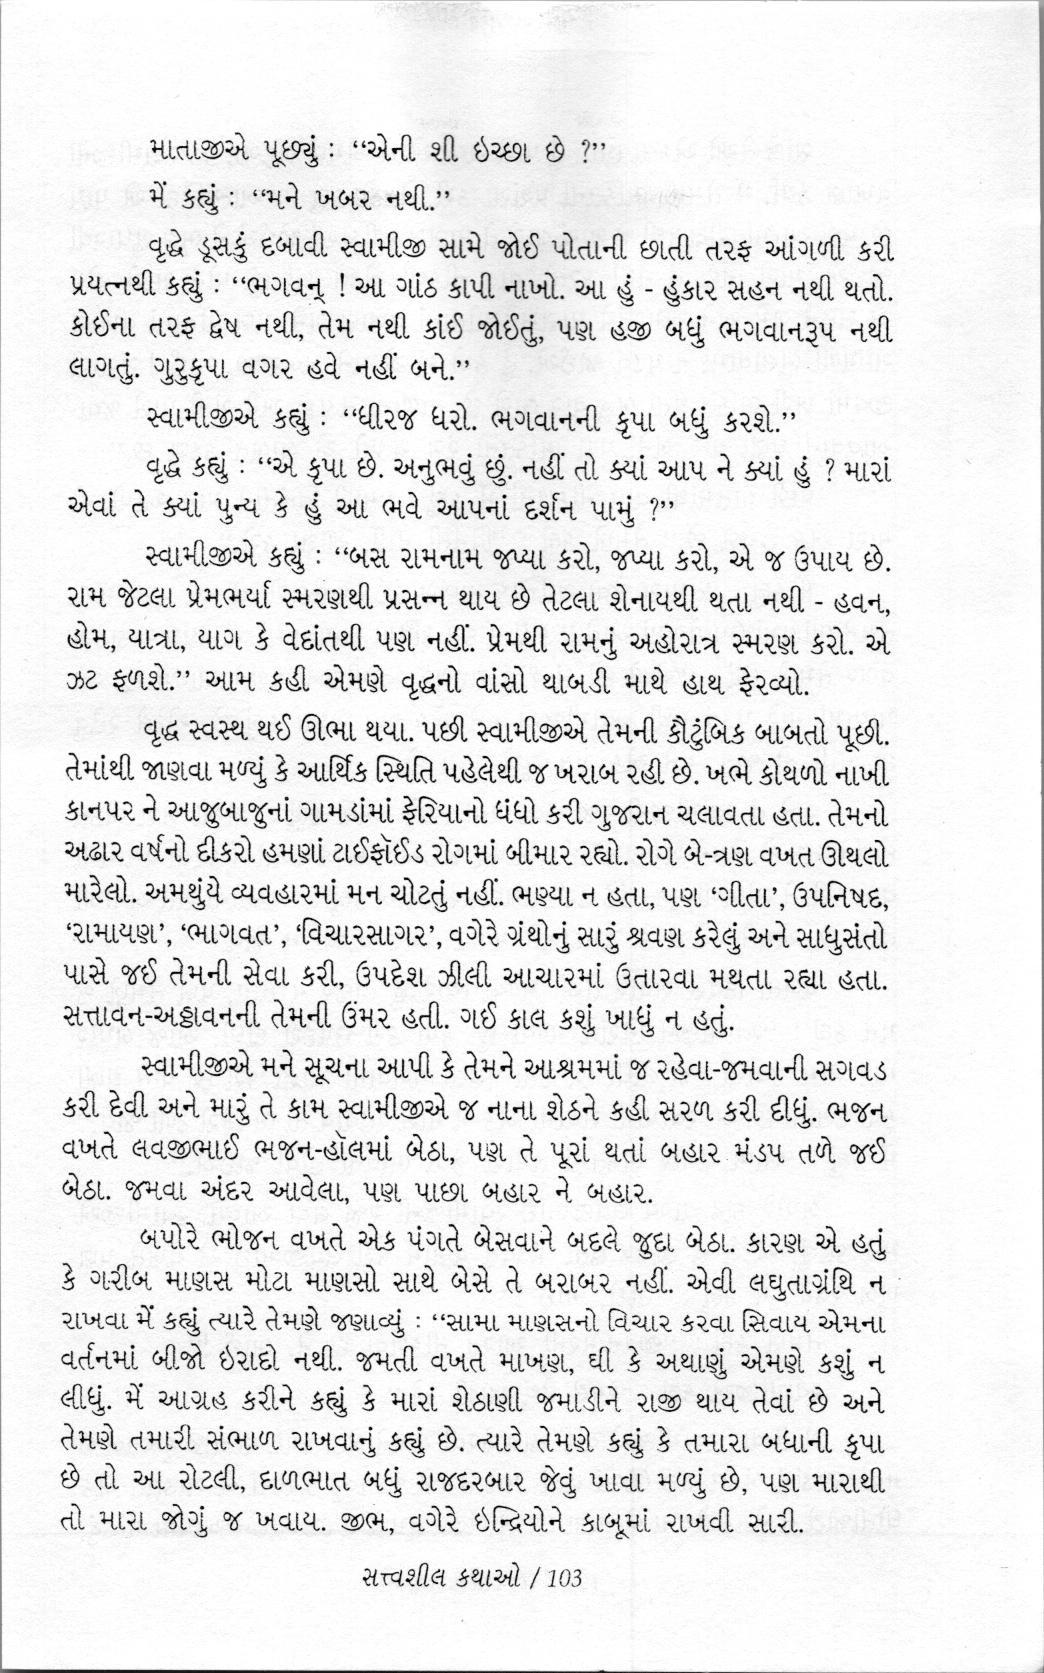 માતાજીએ પૂછ્યું : “એની શી ઇચ્છા છે ?”
મેં કહ્યું : “મને ખબર નથી.”
વૃદ્ધે ડૂસકું દબાવી સ્વામીજી સામે જોઈ પોતાની છાતી તરફ આંગળી કરી
પ્રયત્નથી કહ્યું : “ભગવન્ ! આ ગાંઠ કાપી નાખો. આ હું - હુંકાર સહન નથી થતો.
કોઈના તરફ દ્વેષ નથી, તેમ નથી કાંઈ જોઈતું, પણ હજી બધું ભગવાનરૂપ નથી
લાગતું. ગુરુકૃપા વગર હવે નહીં બને.”
સ્વામીજીએ કહ્યું : “ધીરજ ધરો. ભગવાનની કૃપા બધું કરશે.”
વૃદ્ધે કહ્યું : “એ કૃપા છે. અનુભવું છું. નહીં તો ક્યાં આપ ને ક્યાં હું ? મારાં
એવાં તે ક્યાં પુન્ય કે હું આ ભવે આપનાં દર્શન પામું ?”
સ્વામીજીએ કહ્યું : “બસ રામનામ જપ્યા કરો, જપ્યા કરો, એ જ ઉપાય છે.
રામ જેટલા પ્રેમભર્યા સ્મરણથી પ્રસન્ન થાય છે તેટલા શેનાયથી થતા નથી - હવન,
હોમ, યાત્રા, યાગ કે વેદાંતથી પણ નહીં. પ્રેમથી રામનું અહોરાત્ર સ્મરણ કરો. એ
ઝટ ફળશે.” આમ કહી એમણે વૃદ્ધનો વાંસો થાબડી માથે હાથ ફેરવ્યો.
વૃદ્ધ સ્વસ્થ થઈ ઊભા થયા. પછી સ્વામીજીએ તેમની કૌટુંબિક બાબતો પૂછી.
તેમાંથી જાણવા મળ્યું કે આર્થિક સ્થિતિ પહેલેથી જ ખરાબ રહી છે. ખભે કોથળો નાખી
કાનપર ને આજુબાજુનાં ગામડાંમાં ફેરિયાનો ધંધો કરી ગુજરાન ચલાવતા હતા. તેમનો
અઢાર વર્ષનો દીકરો હમણાં ટાઈફૉઈડ રોગમાં બીમાર રહ્યો. રોગે બે-ત્રણ વખત ઊથલો
મારેલો. અમથુંયે વ્યવહારમાં મન ચોટતું નહીં. ભણ્યા ન હતા, પણ ‘ગીતા’, ઉપનિષદ,
‘રામાયણ’, ‘ભાગવત’, ‘વિચારસાગર’, વગેરે ગ્રંથોનું સારું શ્રવણ કરેલું અને સાધુસંતો
પાસે જઈ તેમની સેવા કરી, ઉપદેશ ઝીલી આચારમાં ઉતારવા મથતા રહ્યા હતા.
સત્તાવન-અઠ્ઠાવનની તેમની ઉંમર હતી. ગઈ કાલ કશું ખાધું ન હતું.
સ્વામીજીએ મને સૂચના આપી કે તેમને આશ્રમમાં જ રહેવા-જમવાની સગવડ
કરી દેવી અને મારું તે કામ સ્વામીજીએ જ નાના શેઠને કહી સરળ કરી દીધું. ભજન
વખતે લવજીભાઈ ભજન-હૉલમાં બેઠા, પણ તે પૂરાં થતાં બહાર મંડપ તળે જઈ
બેઠા. જમવા અંદર આવેલા, પણ પાછા બહાર ને બહાર.
બપોરે ભોજન વખતે એક પંગતે બેસવાને બદલે જુદા બેઠા. કારણ એ હતું
કે ગરીબ માણસ મોટા માણસો સાથે બેસે તે બરાબર નહીં. એવી લઘુતાગ્રંથિ ન
રાખવા મેં કહ્યું ત્યારે તેમણે જણાવ્યું : “સામા માણસનો વિચાર કરવા સિવાય એમના
વર્તનમાં બીજો ઇરાદો નથી. જમતી વખતે માખણ, ઘી કે અથાણું એમણે કશું ન
લીધું. મેં આગ્રહ કરીને કહ્યું કે મારાં શેઠાણી જમાડીને રાજી થાય તેવાં છે અને
તેમણે તમારી સંભાળ રાખવાનું કહ્યું છે. ત્યારે તેમણે કહ્યું કે તમારા બધાની કૃપા
છે તો આ રોટલી, દાળભાત બધું રાજદરબાર જેવું ખાવા મળ્યું છે, પણ મારાથી
તો મારા જોગું જ ખવાય. જીભ, વગેરે ઇન્દ્રિયોને કાબૂમાં રાખવી સારી.
સત્ત્વશીલ કથાઓ / 103